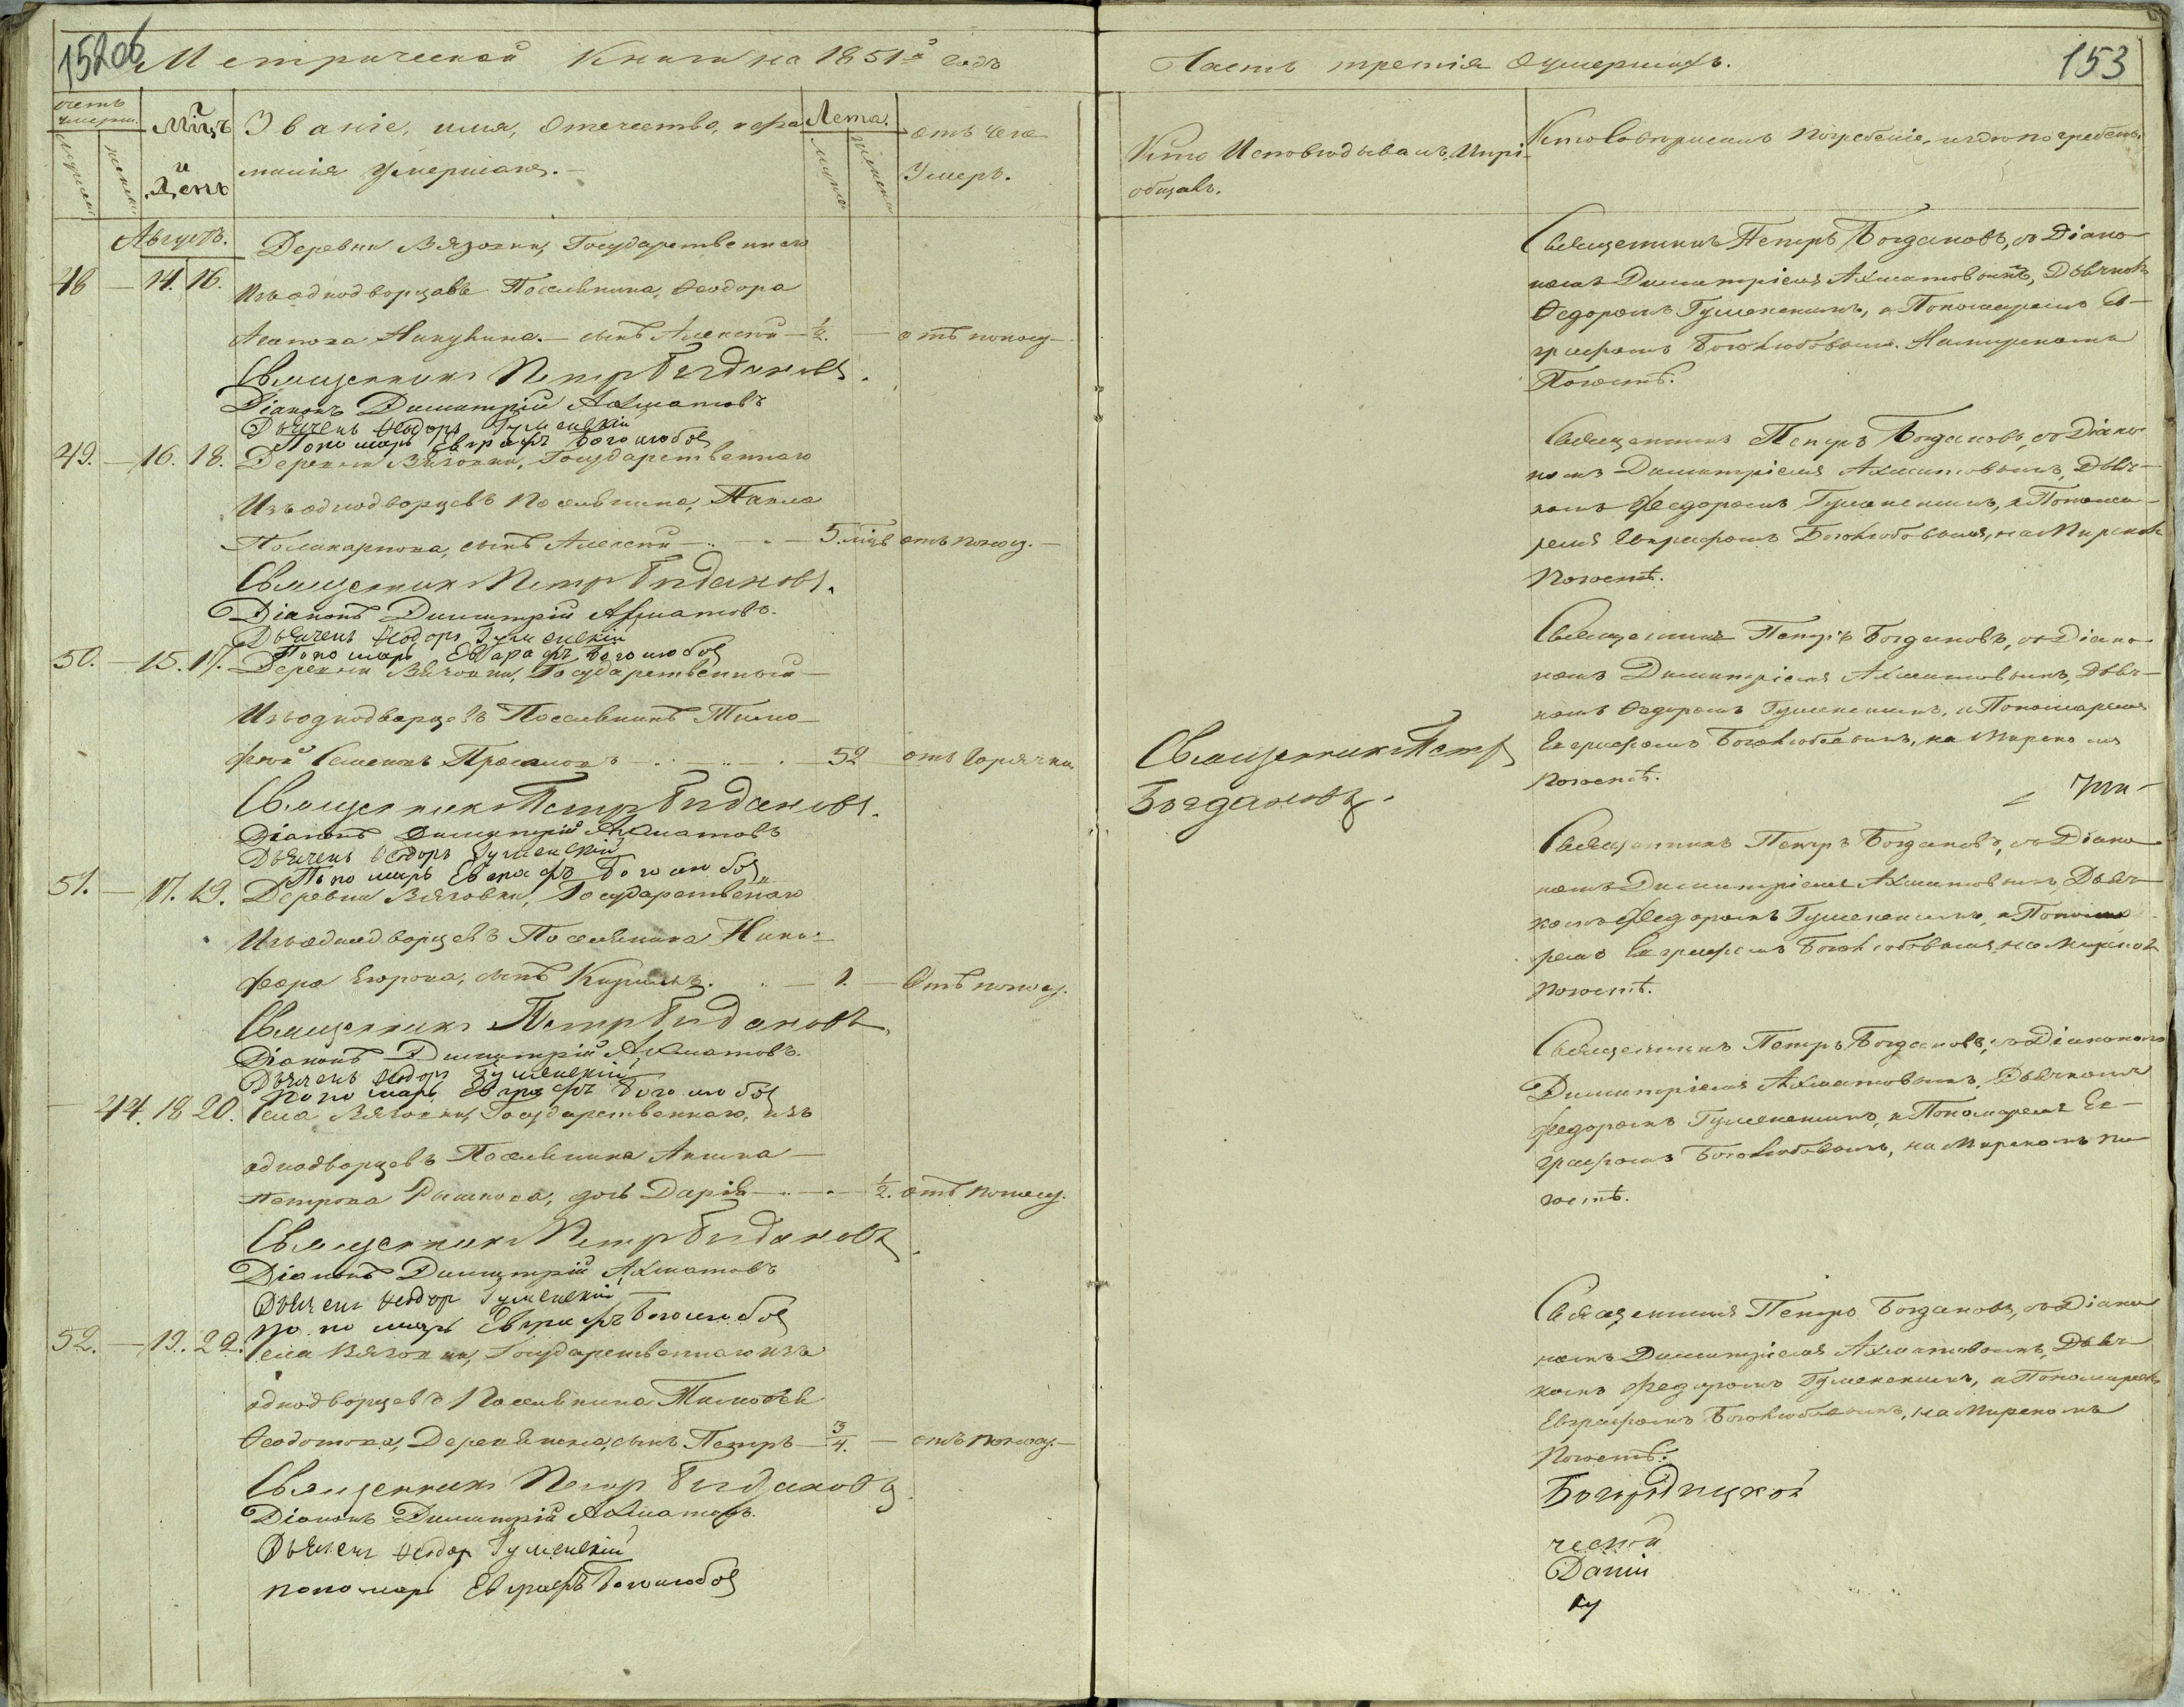 152об
Метрической Книги на 1851й годъ
счетъ умерш.
Мцъ и День
Званіе, имя, отечество, и фа-
милія умершаго.
Лета.
отъ чего
Умеръ.
Августъ.
Деревни Вязовки, Государственнаго
48 — 14. 16.
Изъ однодворцевъ Поселянина, Ѳеодора
сынъ Алексѣй — 1/2. — отъ поносу —
Священникъ Петръ Богдановъ.
Діаконъ Димитрій Ахматовъ
Дьячекъ Ѳеодоръ Гуменскій
Пономарь Евграфъ Боголюбов
49. — 16. 18. Деревни Вязовки, Государственнаго
Изъ однодворцевъ Поселянина, Павла
Поликарпова, сынъ Алексѣй — 5. мцъ отъ поносу. —
Священникъ Петръ Богдановъ.
Діаконъ Димитрій Ахматовъ.
Дьячекъ Ѳеодоръ Гуменскій
Пономарь Евграфъ Боголюбов
50. — 15. 17. Деревни Вязовки, Государственный —
Изъ однодворцевъ Поселянинъ Тимо-
фѣй Семеновъ — 52 отъ горячки.
Священникъ Петръ Богдановъ.
Діаконъ Димитрій Ахматовъ
Дьячекъ Ѳеодоръ Гуменскій
Пономарь Евграфъ Боголюбов
51. — 17. 19. Деревни Вязовки, Государственаго
Изъ однодворцевъ Поселянина Ники-
фора Егорова, сынъ Кирилъ. — 1. — Отъ поносу.
Священникъ Петръ Богдановъ
Діаконъ Димитрій Ахматовъ.
Дьячекъ Ѳеодоръ Гуменскій
Пономарь Евграфъ Боголюбов
— 44. 18 20. Села Вязовки, Государственнаго, изъ
однодворцевъ Поселянина Акима —
Петрова дочь Дарія — 1/2. отъ поносу.
Священникъ Петръ Богдановъ.
Діаконъ Димитрій Ахматовъ
Дьячекъ Ѳеодор Гуменскій
пономарь Евграфъ Боголюбов
52. — 19. 22. Села Вязовки, Государственнаго изъ
однодворцевъ Поселянина Тимоѳея
Ѳеодотова, сынъ Петръ — 3/4. — отъ поносу. —
Священникъ Петр Богдановъ.
Діаконъ Димитрій Ахматовъ.
Дьячекъ Ѳеодор Гуменскій
пономарь Евграфъ Боголюбов
Часть третія о умершихъ.
153
Кто Исповѣдывалъ, и прі-
общалъ.
Кто совершалъ погребеніе, и гдѣ погребены.
Священникъ Петръ
Богдановъ.
Священникъ Петръ Богдановъ, съ Діако-
номъ Димитріемъ Ахматовымъ, Дьячкомъ
Ѳедоромъ Гуменскимъ, и Пономаремъ Ев-
графомъ Боголюбовымъ. На мирскомъ
Погостѣ.
Священникъ Петръ Богдановъ, съ Діако-
номъ Димитріемъ Ахматовымъ, Дьяч-
комъ Федоромъ Гуменскимъ, и Понома-
ремъ Евграфомъ Боголюбовымъ, на Мирском
Погостѣ.
Священникъ Петръ Богдановъ, съ Діако-
номъ Димитріемъ Ахматовымъ, Дьяч-
комъ Ѳедоромъ Гуменскимъ, и Пономаремъ
Евграфомъ Боголюбовымъ, на Мирскомъ
Погостѣ.
Священникъ Петръ Богдановъ, съ Діако-
номъ Димитріемъ Ахматовымъ, Дьяч-
комъ Федоромъ Гуменскимъ, и Понома-
ремъ Евграфомъ Боголюбовымъ, на Мирском
Погостѣ.
Священникъ Петръ Богдановъ, съ Діакономъ
Димитріемъ Ахматовымъ, Дьячкомъ
Федоромъ Гуменскимъ, и Пономаремъ Ев-
графомъ Боголюбовымъ, на Мирскомъ По-
гостѣ.
Священникъ Петръ Богдановъ, съ Діако-
номъ Димитріемъ Ахматовымъ, Дьяч-
комъ Федоромъ Гуменскимъ, и Пономаремъ
Евграфомъ Боголюбовымъ, на Мирскомъ
Погостѣ.
Богородицкой
ческой
Даніи
ку